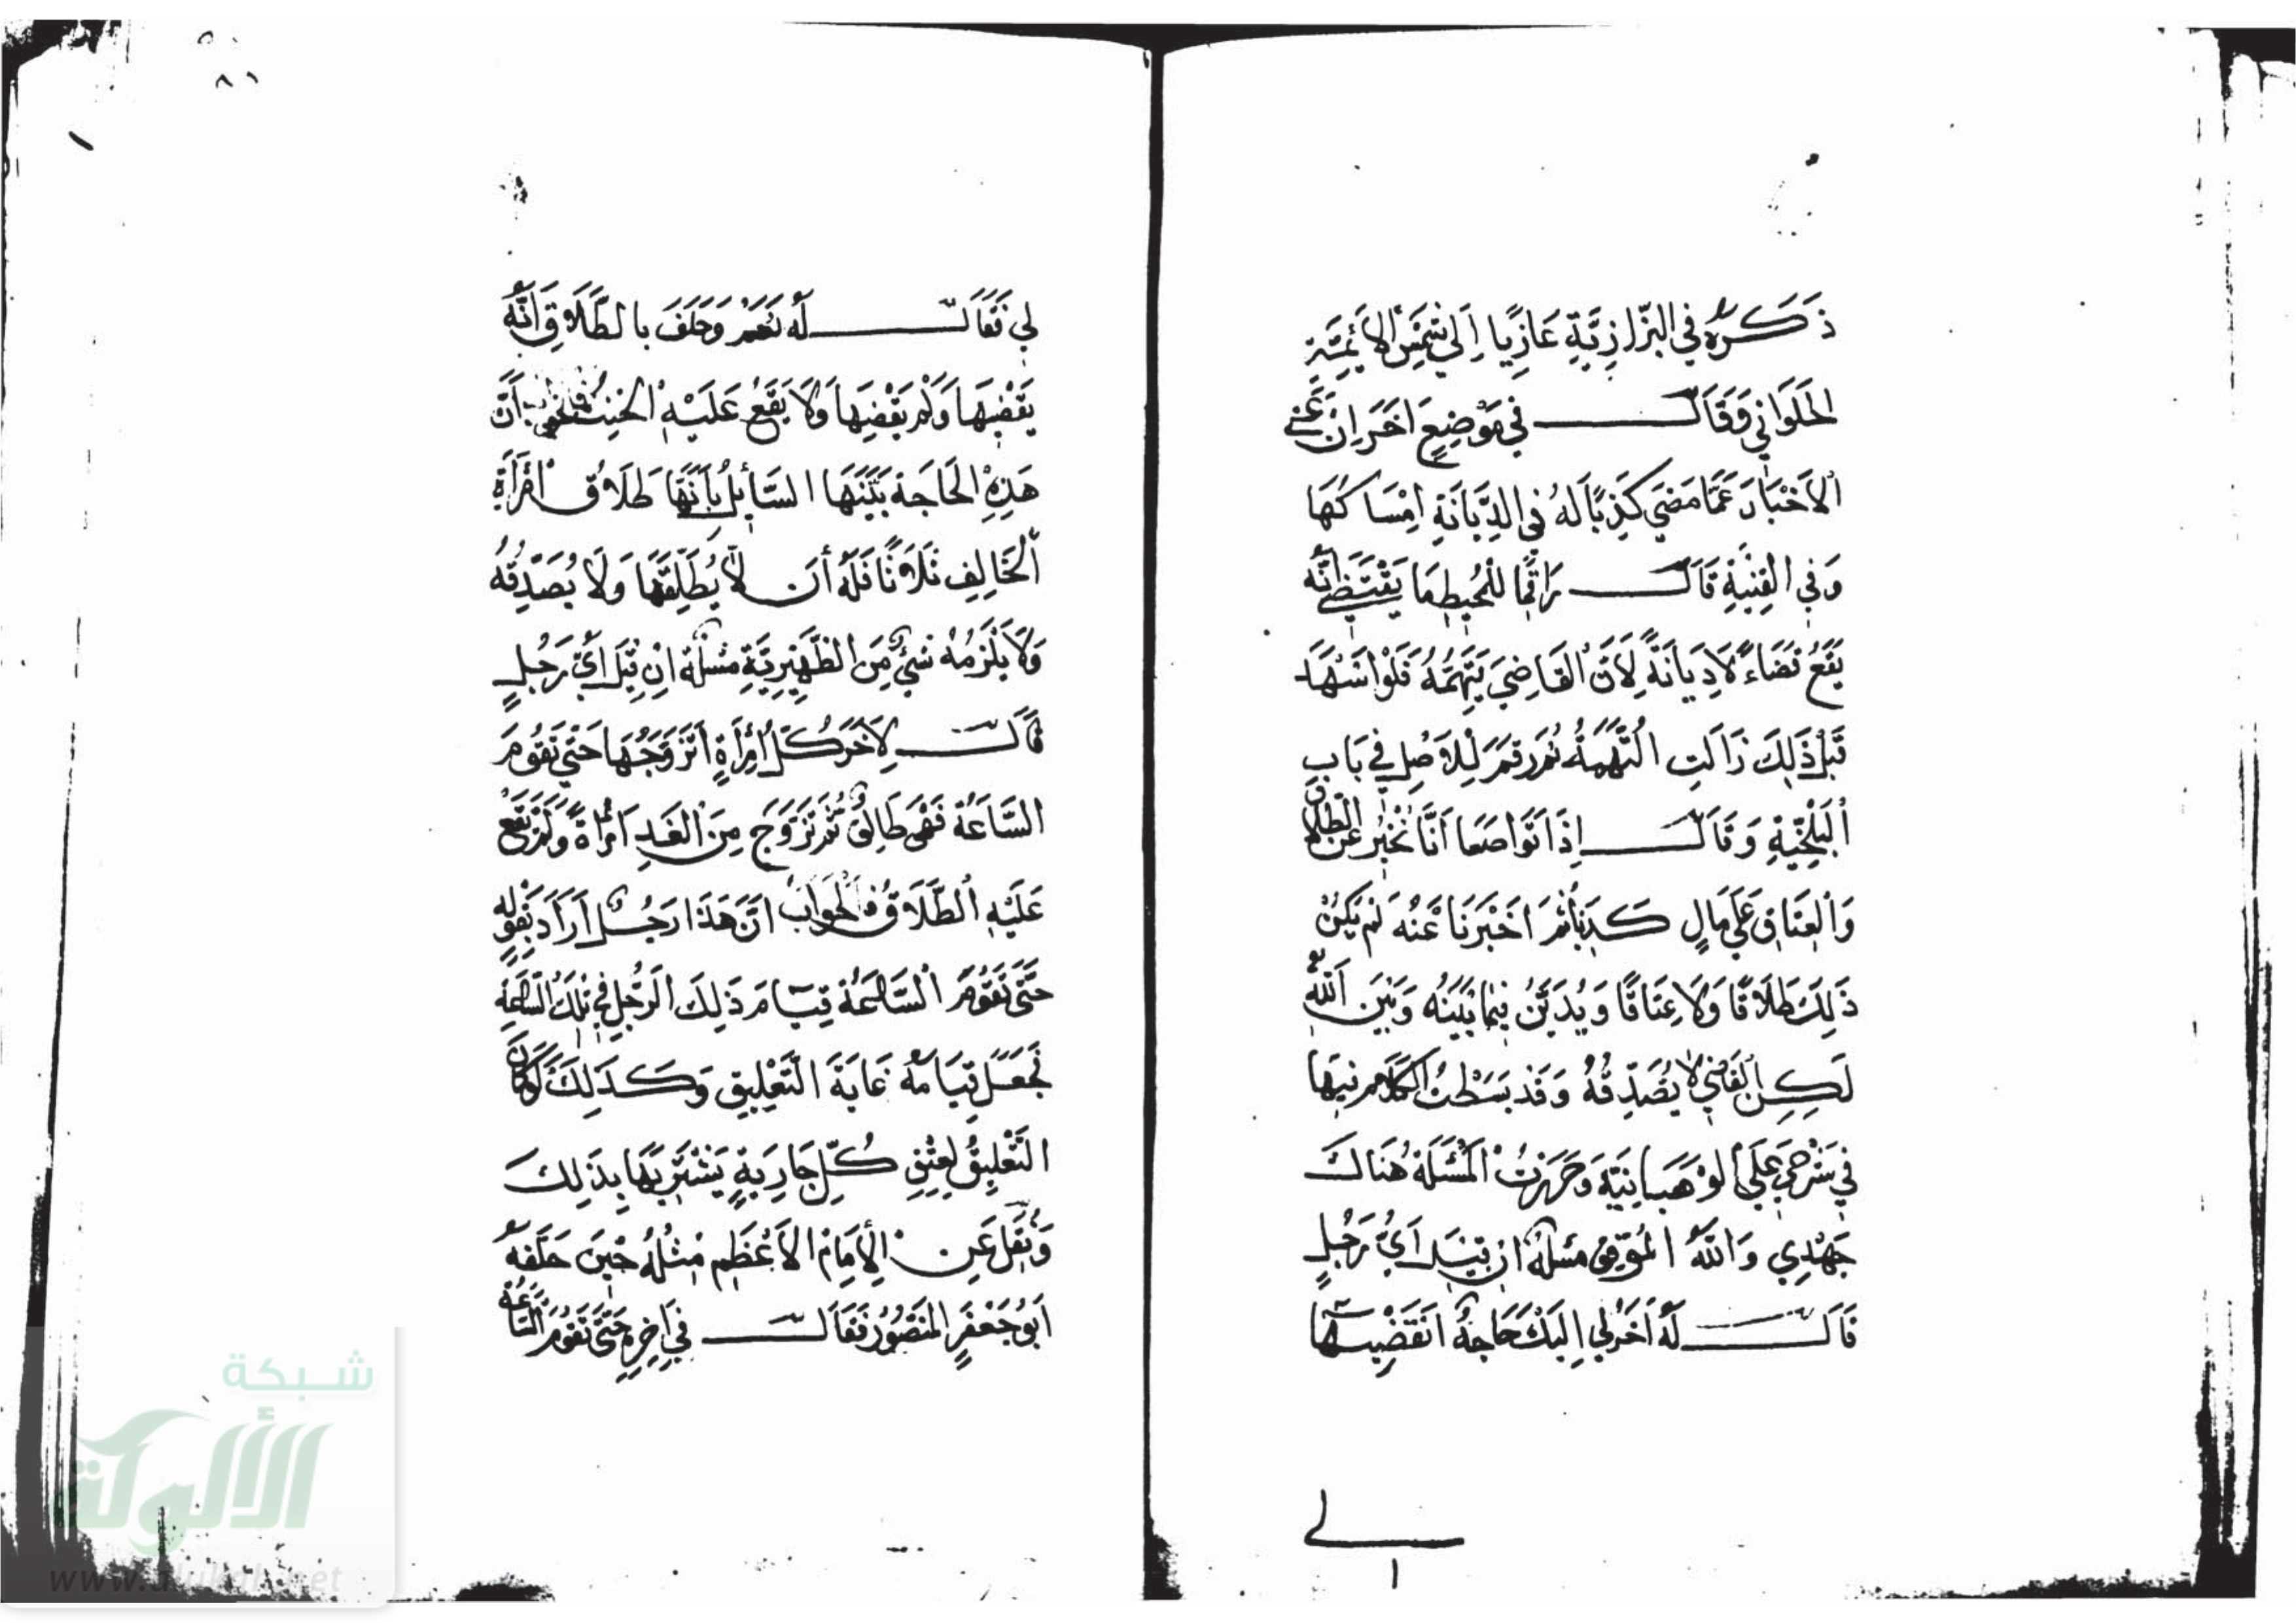 ذَكَرَهُ فِي البَزَّازِيَّةِ عَازِيًا اِلَى شَمْسِ الأَئِمَّةِ
الحَلَوَانِي وَقَالَ فِي مَوْضِعٍ اخَرَ اِنْ عَنَى
الاَخْبَارَ عَمَّا مَضَى كَذِبًا لَهُ فِي الدِّيَانَةِ اِمْسَاكُهَا
وَفِي القِنْيَةِ قَالَ رَاقِمًا لِلْمُحِيطِ مَا يَقْتَضِي اَنَّهُ
يَقَعُ قَضَاءً لَا دِيَانَةً لِاَنَّ القَاضِيَ يَتَّهِمُهُ فَلَوْ اَشْهَدَ
قَبْلَ ذَلِكَ زَالَتِ التُّهْمَةُ ثُمَّ رَقَمَ لِلْاَصْلِ فِي بَابِ
البَلْخِيَّةِ وَقَالَ اِذَا تَوَاضَعَا اَنَّا نُخْبِرُ عَنْ الطَّلَاقِ
وَالعِتَاقِ عَلَى مَالٍ كَذِبًا ثُمَّ اَخْبَرَنَا عَنْهُ لَمْ يَكُنْ
ذَلِكَ طَلَاقًا وَلَا عِتَاقًا وَيُدَيَّنُ فِيمَا بَيْنَهُ وَبَيْنَ اللهِ تع
لَكِنِ القَاضِي لَا يُصَدِّقُهُ وَقَدْ بَسَطْتُ الكَلَامَ فِيهَا
فِي شَرْحِي عَلَى الوَهْبَانِيَّةِ وَحَرَّرْتُ المَسْئَلَةَ هُنَاكَ
جَهْدِي وَاللهُ المُوَفِّقُ مَسْئَلَةٌ اِنْ قِيْلَ اَيُّ رَجُلٍ
قَالَ لَهُ اخَرُ لِي اِلَيْكَ حَاجَةٌ اتَقْضِيهَا
لِي
لِي فَقَالَ لَهُ نَعَمْ وَحَلَفَ بِالطَّلَاقِ اَنَّهُ
يَقْضِيهَا وَلَمْ يَقْضِهَا وَلَا يَقَعُ عَلَيْهِ الحِنْثُ فالجواب اَنَّ
هَذِهِ الحَاجَةَ بَيَّنَهَا السَّائِلُ بِاَنَّهَا طَلَاقُ امْرَأَةِ
الحَالِفِ ثَلَاثًا فَلَهُ أَنْ لَا يُطَلِّقَهَا وَلَا يُصَدِّقُهُ
وَلَا يَلْزَمُهُ شَيْءٌ مِنَ الظَّهِيرِيَّةِ مَسْئَلَةٌ اِنْ قِيْلَ اَيُّ رَجُلٍ
قَالَ لِاخَرَ كُلُّ امْرَأَةٍ اَتَزَوَّجُهَا حَتَّى تَقُومَ
السَّاعَةُ فَهِيَ طَالِقٌ ثُمَّ تَزَوَّجَ مِنَ الغَدِ امْرَأَةً وَلَمْ يَقَعْ
عَلَيْهِ الطَّلَاقُ فالجَوَابُ اَنَّ هَذَا رَجُلٌ اَرَادَ بِقَوْلِهِ
حَتَّى تَقُومَ السَّاعَةُ قِيَامَ ذَلِكَ الرَّجُلِ فِي تِلْكَ السَّاعَةِ
فَجَعَلَ قِيَامَهُ غَايَةَ التَّعْلِيقِ وَكَذَلِكَ لَوْ كَانَ
التَّعْلِيقُ لِعِتْقِ كُلِّ جَارِيَةٍ يَشْتَرِيهَا بِذَلِكَ
وَنُقِلَ عَنِ الأِمَامِ الاَعْظَمِ مِثْلُهُ حِيْنَ حَلَّفَهُ
اَبُو جَعْفَرٍ المَنْصُورُ فَقَالَ فِي اخِرِهِ حَتَّى تَقُومَ السَّاعَةُ
شبكة
الألوكة
www.alukah.net